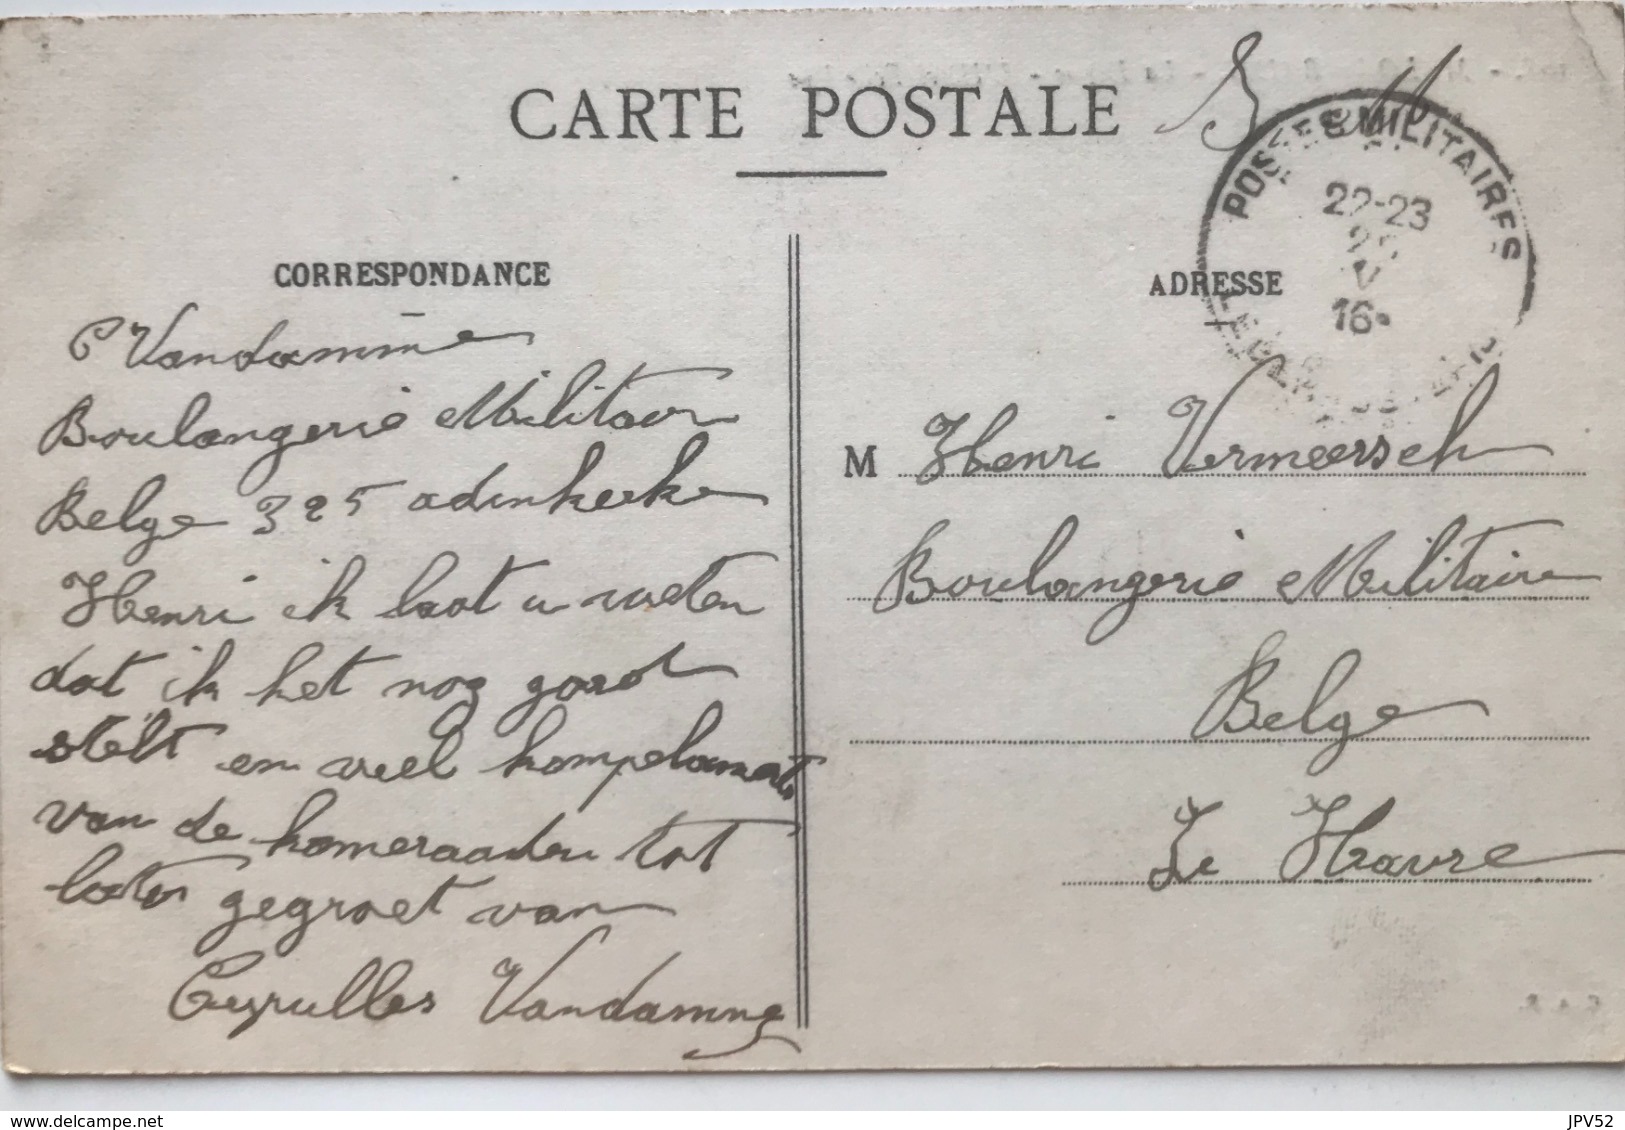 CARTE POSTALE
S M
POSTES MILITAIRES
22-23
V
16
CORRESPONDANCE
ADRESSE
C Vandamme
Boulangerie Militair
Belge 325 adinkerke
Henri ik laat u weten
dat ik het nog goed
stelt en veel kompelamets
van de kameraaden tot
later gegroet van
Ceyrulles Vandamme
M Henri Vermeersch
Boulangerie Militaire
Belge
Le Havre
delcampe.net
JPV52